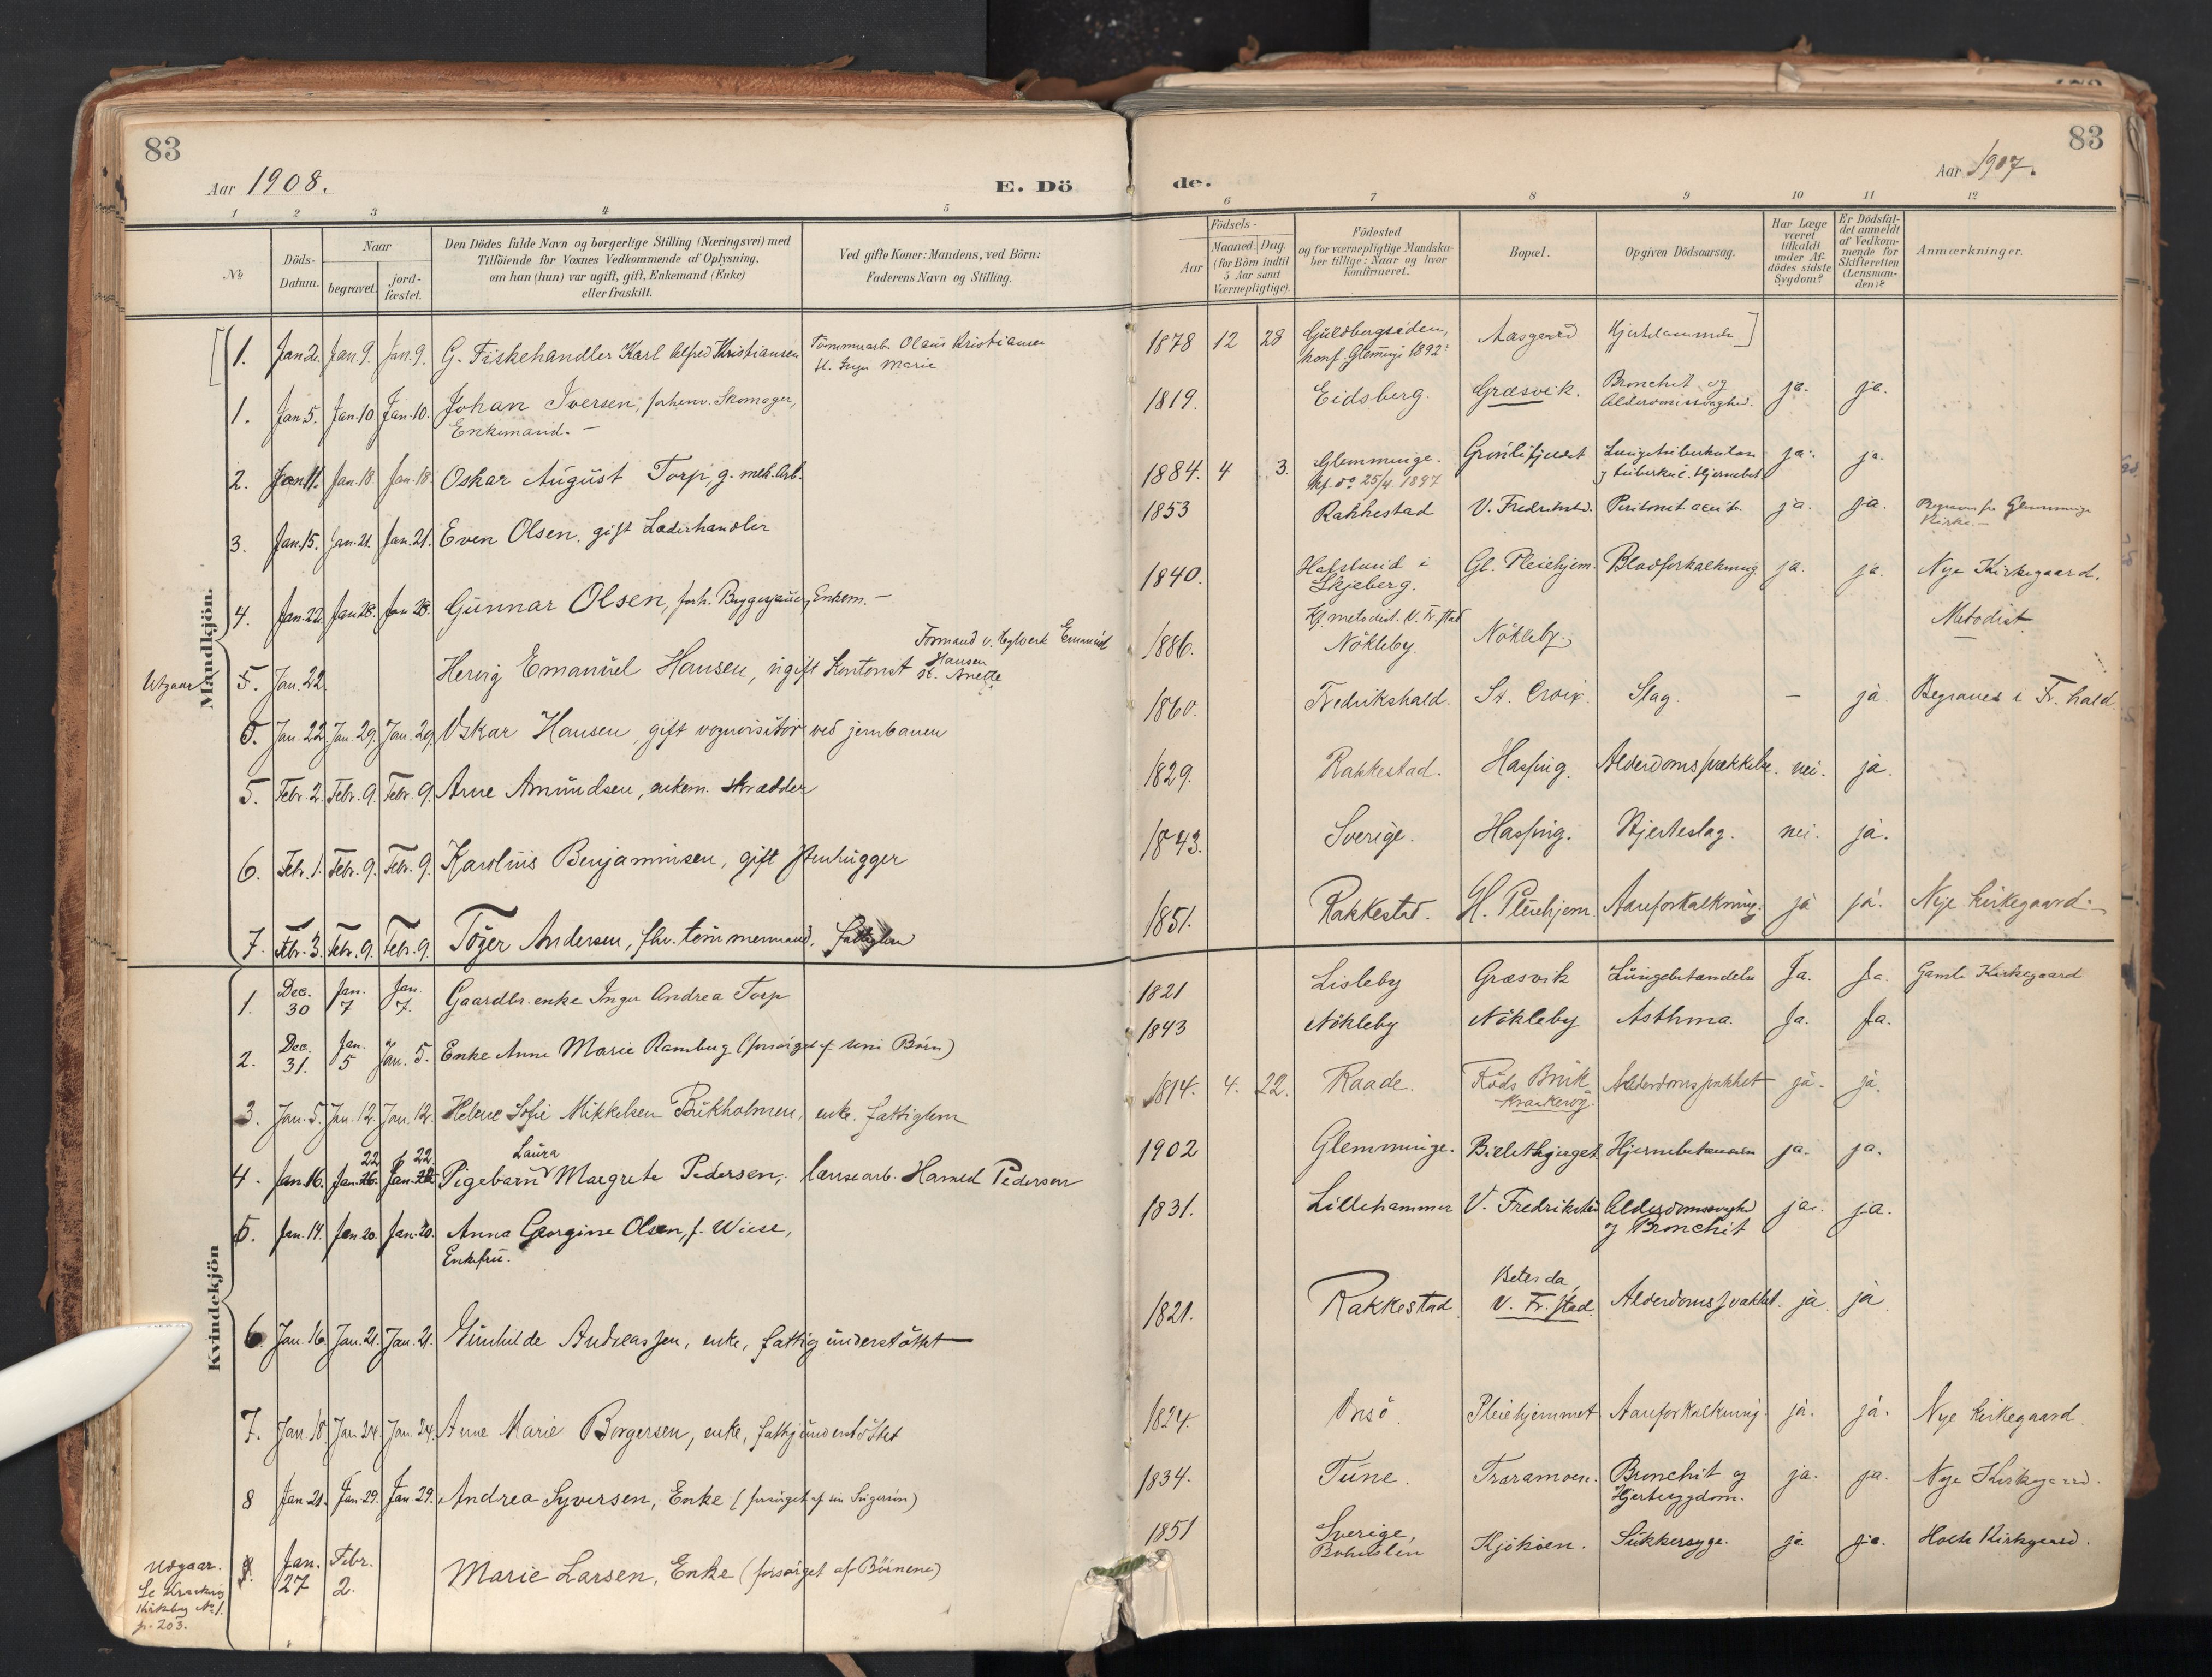 83
Aar 1908.
E. Dö
1 2 3 4 5
№
Döds-
Datum.
Naar
begravet.
jord-
fæstet.
Den Dödes fulde Navn og borgerlige Stilling (Næringsvei) med
Tilföiende for Voxnes Vedkommende af Oplysning,
om han (hun) var ugift, gift, Enkemand (Enke)
eller fraskilt.
Ved gifte Koner: Mandens, ved Börn:
Faderens Navn og Stilling.
Mandkjön.
1. Jan 2. Jan 9. Jan. 9. G. Fiskehandler Karl Alfred Kristiansen Tömmerarb. Olaus Kristiansen
H. Inga Marie
1. Jan 5. Jan. 10 Jan. 10. Johan Iversen, forhenv. Skomager,
Enkemand. —
2. Jan 11. Jan. 18. Jan. 18. Oskar August Torp, g. mek. Arb.
3. Jan. 15. Jan. 21. Jan. 21. Even Olsen, gift Læderhandler
4. Jan. 22. Jan 28. Jan 28. Gunnar Olsen, forh. Bryggesjauer, Enkem. —
Formand v. Höglverk Emanuel
Hansen
Utgaar 5. Jan. 22 Hervig Emanuel Hansen, ugift Kontorist H. Anette
5. Jan. 22 Jan. 29. Jan. 29. Oskar Hansen, gift vognvisitör ved jernbanen
5. Febr. 2. Febr. 9. Febr. 9. Arne Amundsen, enkem. skrædder
6. Febr. 1. Febr. 9. Febr. 9. Karolius Benjaminsen, gift stenhugger
7. Febr. 3. Febr. 9. Febr. 9. Töger Andersen, fhv. tömmermand, fattiglem
Kvindekjön
1. Dec. 30 Jan. 7 Jan. 7. Gaardbr. enke Inger Andrea Torp
2. Dec. 31. Jan. 5 Jan. 5. Enke Anne Marie Ramberg (forsörget af sine Börn)
3. Jan. 5. Jan. 12. Jan. 12. Helene Sofie Mikkelsen Bukholmen, enke. fattiglem
22 22 Laura
4. Jan 16. Jan. 26. Jan. 26. Pigebarn Margrete Pedersen, lænsearb. Harald Pedersen
5. Jan. 14. Jan 20. Jan. 20. Anna Georgine Olsen, f. Wiese,
Enkefru.
6. Jan. 16. Jan. 21. Jan. 21. Gunhilde Andreassen, enke, fattigunderstöttet
7. Jan. 18. Jan 24. Jan. 24. Anne Marie Borgersen, enke, fattigunderstöttet
8 Jan 21. Jan 29. Jan 29. Andrea Syversen, Enke (forsörget af sin Svigersön)
Udgaar. Jan. 27 Febr. 2. Marie Larsen, Enke (forsörget af Börnene)
Se Krakeröy
Kirkebog № 1.
p. 203.
83
de.
Aar 1907.
6 7 8 9 10 11 12
Födsels-
Aar
Maaned. Dag.
(for Börn indtil
5 Aar samt
Værnepligtige).
Födested
og for værnepligtige Mandska-
ber tillige: Naar og hvor
konfirmeret.
Bopæl.
Opgiven Dödsaarsag.
Har Læge
været
tilkaldt
under Af-
dödes sidste
Sygdom?
Er Dödsfal-
det anmeldt
af Vedkom-
mende for
Skifteretten
(Lensman-
den)?
Anmærkninger.
1878 12 28 Guldbergsiden, Aasgaard Hjertelammelse
konf. Glemminge 1892.
1819. Eidsberg. Græsvik. Bronchit og ja. ja.
Alderdomssvaghed.
1884. 4 3. Glemminge. Grönlifjeldet Lungetuberkulose ja. ja.
kf. do 25/4 1897 og tuberkul. Hjernebet.
1853 Rakkestad V. Fredrikstad. Peritonit acut. ja. ja. Begraves fra Glemminge
Kirke. —
1840. Hafslund i Gl. Pleiehjem. Blodforkalkning ja. ja. Nye Kirkegaard.
Skjeberg.
Kf. metodist. V. Fr.stad Metodist.
1886. Nökleby. Nökleby.
1860. Fredrikshald. St. Croix. Slag. — ja Begraves i Fr.hald.
1829. Rakkestad. Hassing. Alderdomssvakhet. nei. ja.
1843. Sverige. Hassing. Hjerteslag. nei. ja.
1851. Rakkestad. Gl. Pleiehjem. Aareforkalkning. ja ja. Nye kirkegaard. —
1821 Lisleby Græsvik Lungebetændelse Ja. Ja. Gamle Kirkegaard
1843 Nökleby Nökleby Asthma. Ja. Ja.
1814. 4. 22. Raade. Röds Bruk Alderdomssvakhet ja. ja.
Krakeröy.
1902 Glemminge. Bieletbjerget Hjernebetændelse ja. ja.
1831. Lillehammer V. Fredrikstad Alderdomssvaghed ja. ja.
og Bronchit
Betesda,
1821. Rakkestad V. Fr.stad Alderdomssvakhet. ja. ja
1824. Onsö. Pleiehjemmet Aareforkalkning. ja. ja. Nye kirkegaard.
1834. Tune. Traramoen. Bronchit og ja. ja. Nye Kirkegaard.
Hjertesygdom.
1851 Sverige, Kjököen. Sukkersyge. ja ja. Holte Kirkegaard.
Bohuslen